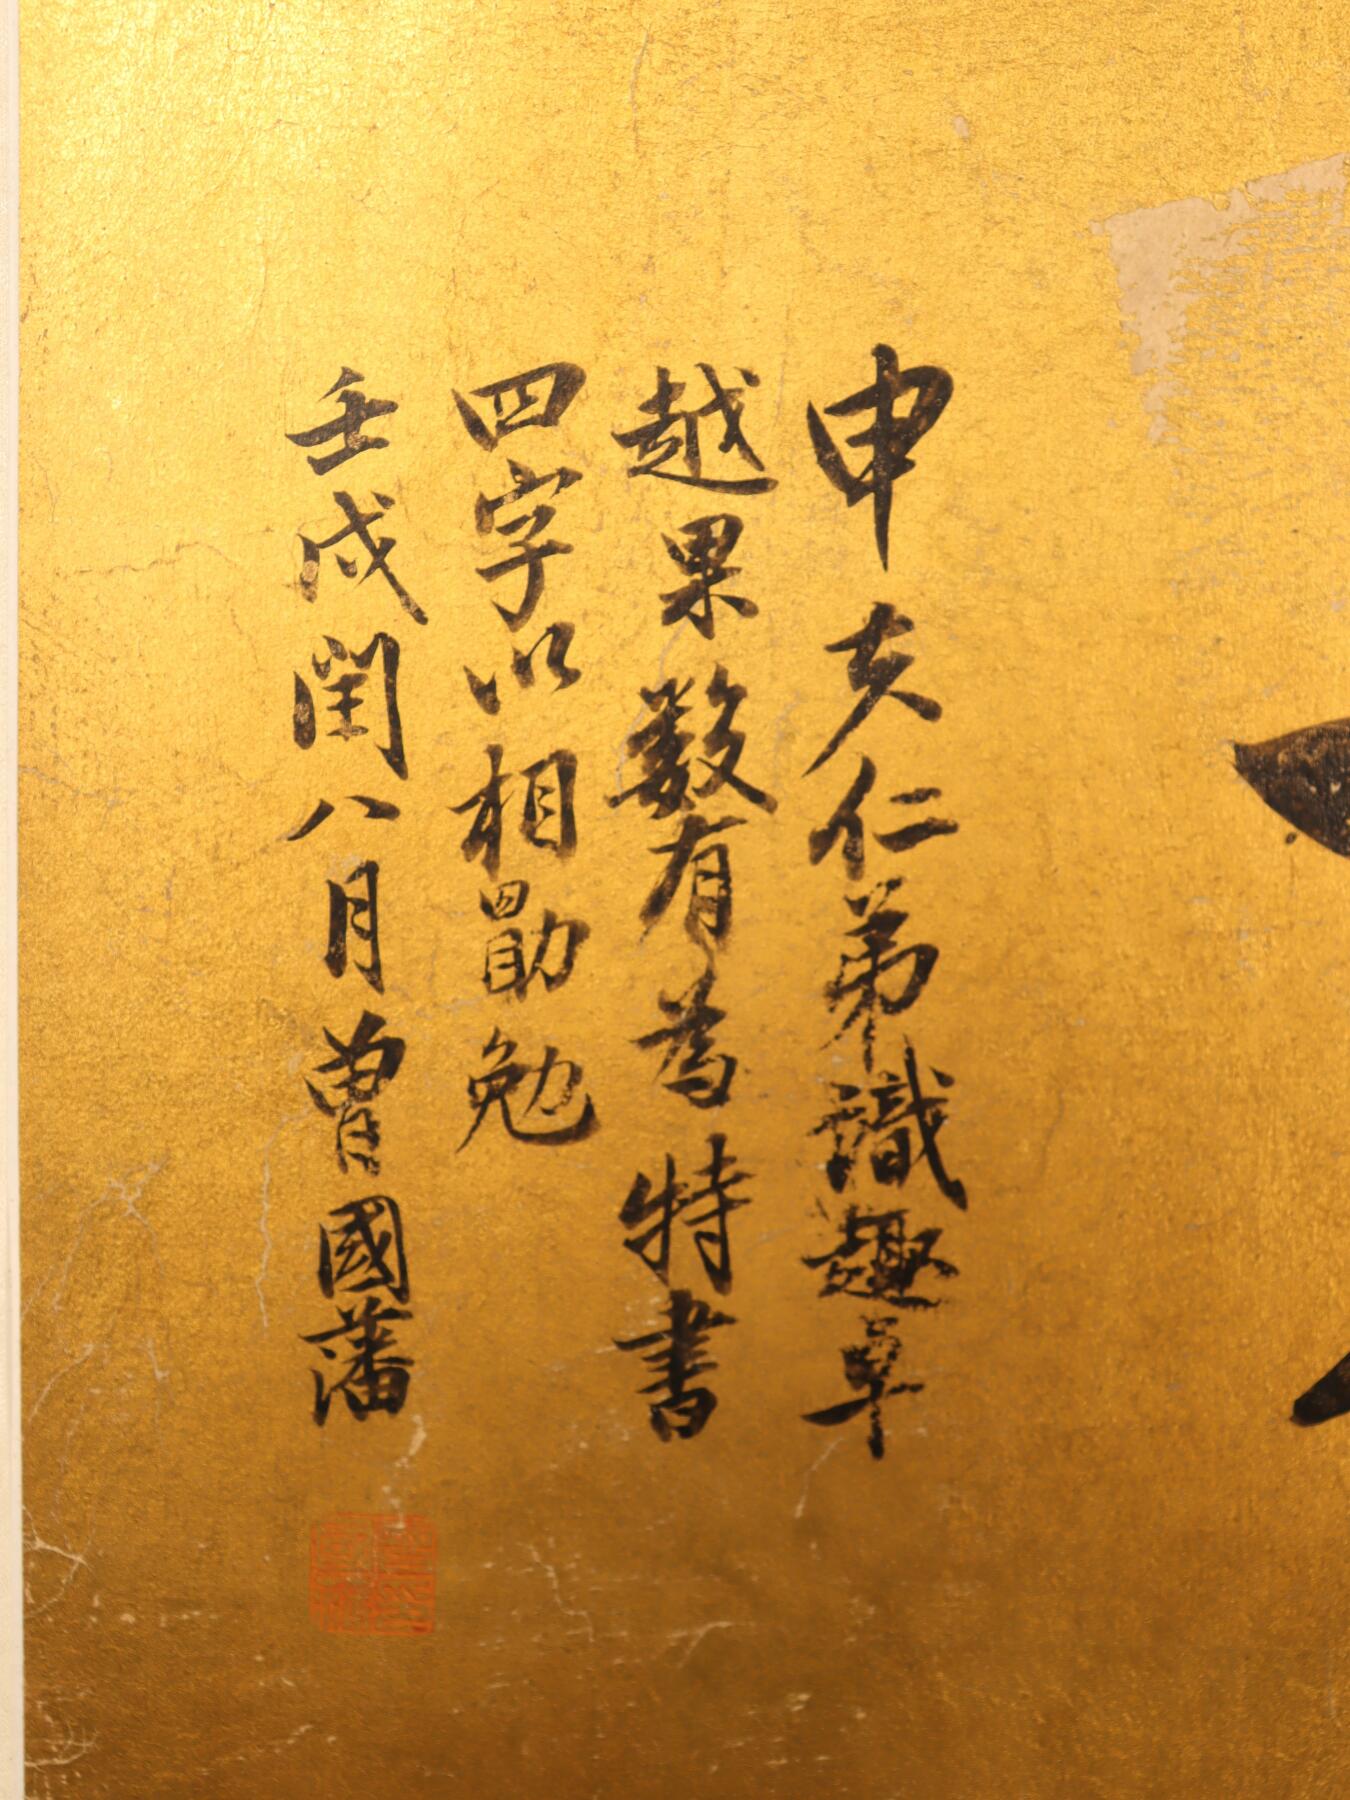 申夫仁弟識趣卓
越果敢有為特書
四字以相勖勉
壬戌閏八月曾國藩